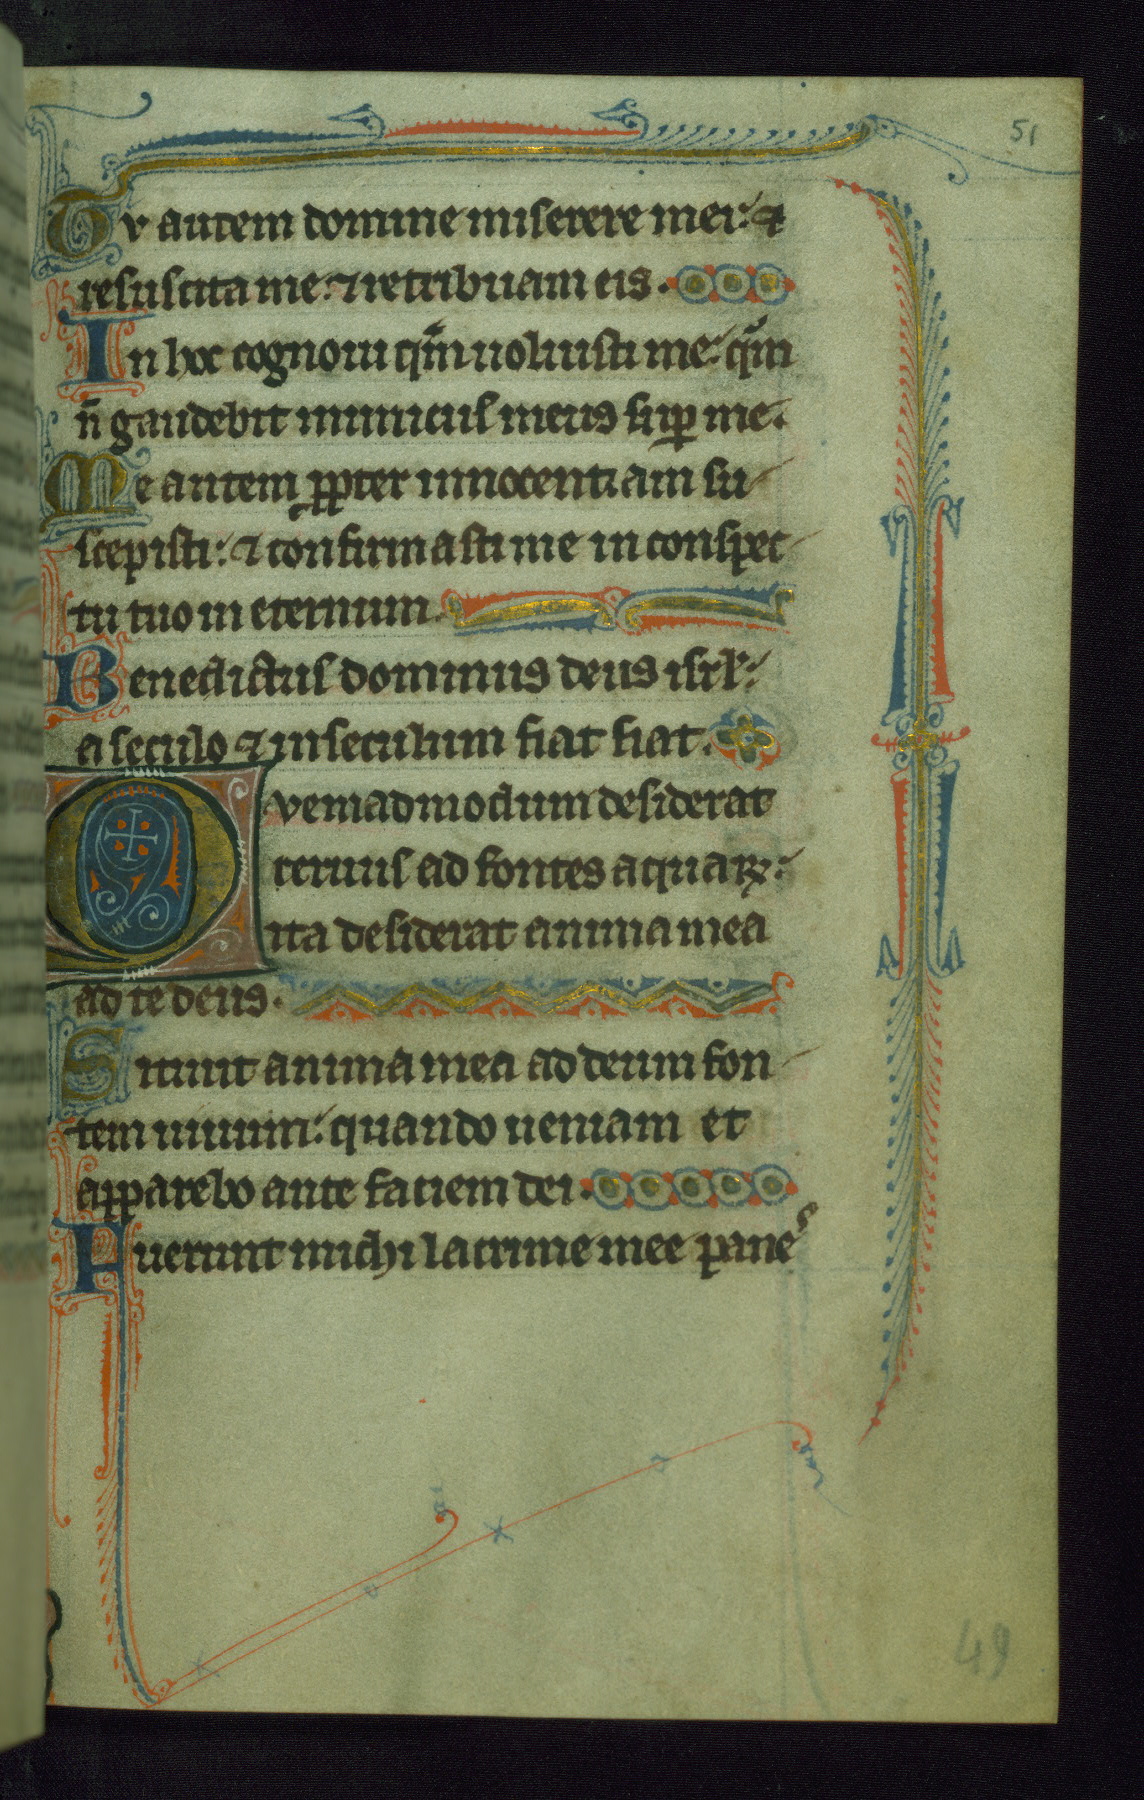 51
Tv autem domine miserere mei: ⁊
resuscita me: ⁊ retribuam eis.
In hoc cognoui qm̄ uoluisti me: qm̄
n̄ gaudebit inimicus meus sup̲ me.
Me autem pp̲ter innocentiam su
scepisti: ⁊ confirmasti me in conspec
tu tuo in eternum.
Benedictus dominus deus isrl':
a seculo ⁊ in seculum fiat fiat.
Qvemadmodum desiderat
ceruus ad fontes aquaꝝ:
ita desiderat anima mea
ad te deus.
Sitiuit anima mea ad deum fon
tem uiuum: quando ueniam et
apparebo ante faciem dei.
Fuerunt michi lacrime mee panes
49